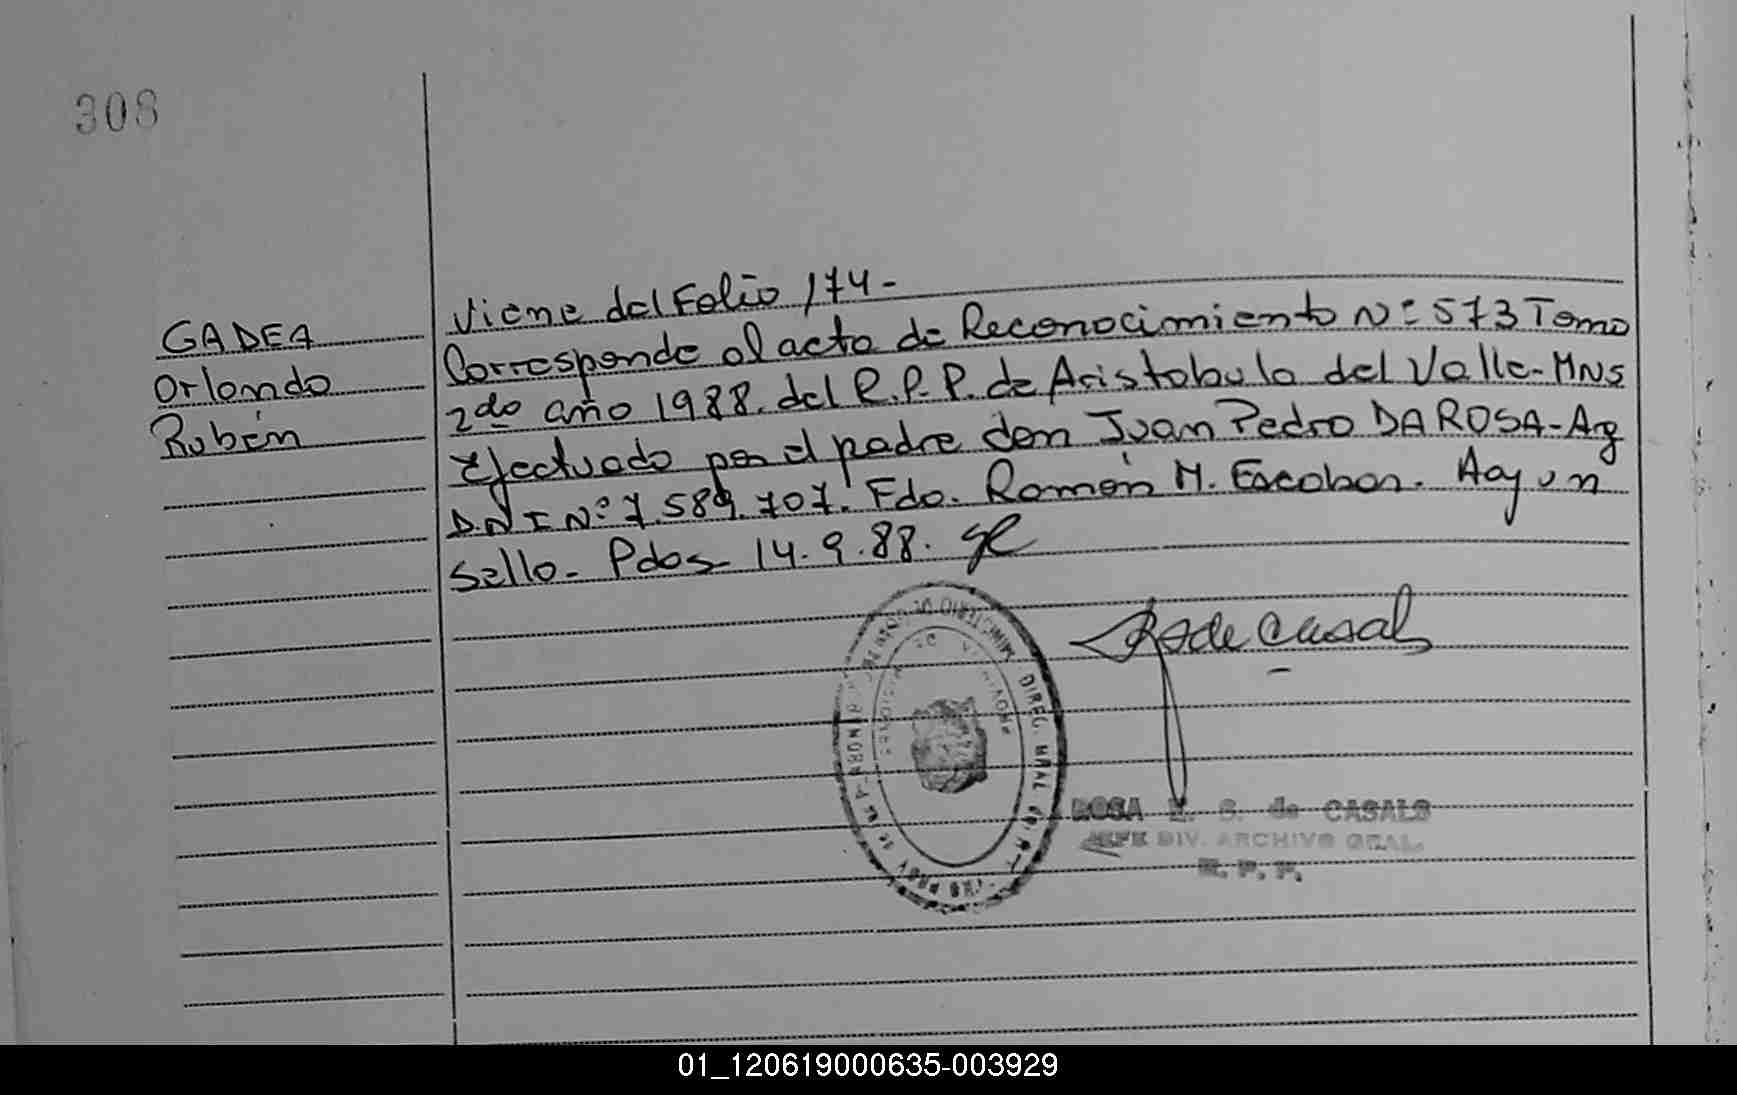 308
GADEA
Orlando
Rubén
Viene del Folio 174-
Corresponde al acta de Reconocimiento Nº 573 Tomo
2do año 1988. del R.P.P. de Aristobulo del Valle-MNS
Efectuado por el padre don Juan Pedro DA ROSA-Arg
DNI Nº 7.589.707. Fdo. Ramón M. Escobar. Hay un
sello- Pdas- 14.9.88.
R S de Casals
MINISTERIO DE DIREC. GRAL
ROSA E. S. de CASALS
JEFE DIV. ARCHIVO GRAL.
R. P. P.
01_120619000635-003929